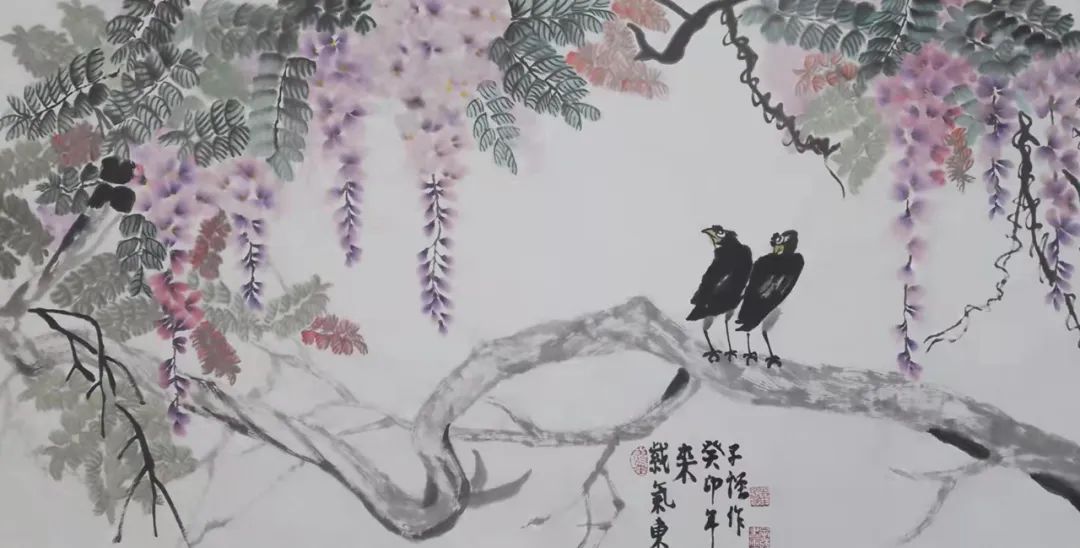 紫氣東
来
癸卯年
子 作